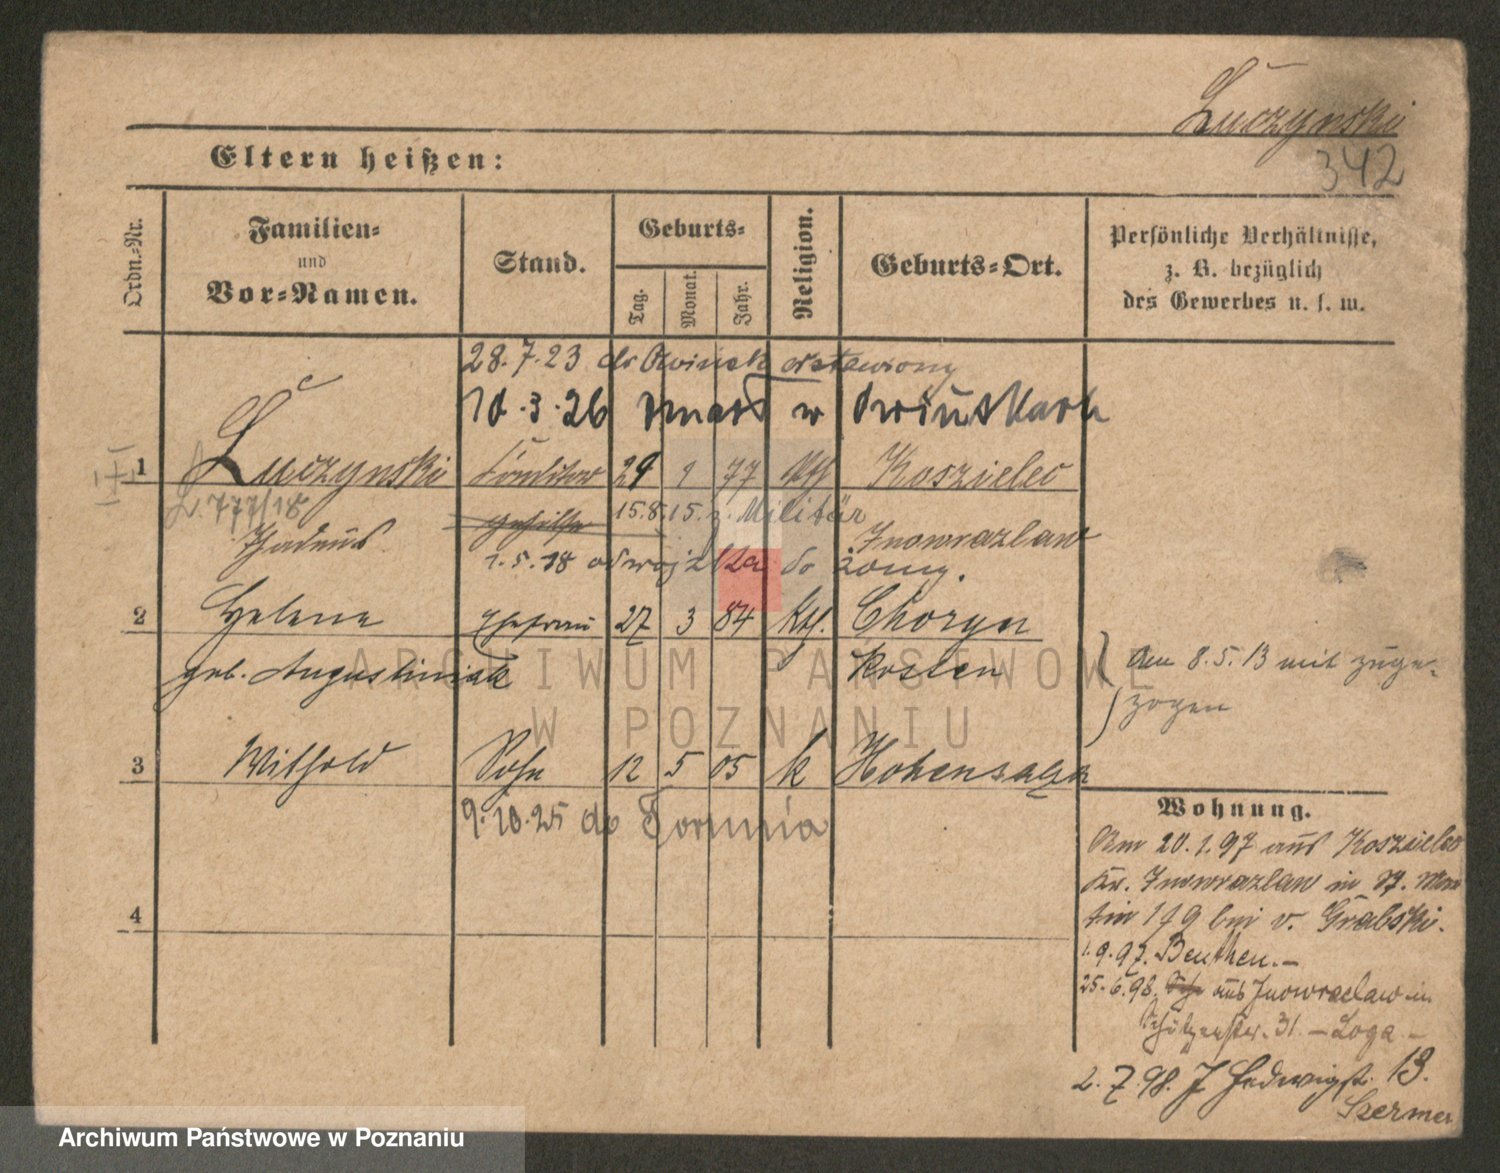 Łuczynski
342
Eltern heißen:
Ordn.-Nr.
Familien- und Vor-Namen.
Stand.
Geburts-
Tag.
Monat.
Jahr.
Religion.
Geburts-Ort.
Persönliche Verhältnisse,
z. B. bezüglich
des Gewerbes u. s. w.
28.7.23 do Owinsk odstawiony
10.3.26 zmarł w Owińskach
1 Łuczynski Conditor 29 9 77 kth Koszielec
L.777/18
15.8.15. z. Militär
Thadeus gehilfe Inowrazlaw
1.5.18 od wojska do żony.
2 Helene Ehefrau 27 3 84 kth. Choryn
geb. Augustiniak Kosten
am 8.5.13 mit zuge-
zogen
3 Withold Sohn 12 5 05 k Hohensalza
9.10.25 do Torunia
4
Wohnung.
Am 20.1.97 aus Koszielec
Kr. Inowrazlaw in St. Mar
tin 19 bei v. Grabski.
1.9.97. Beuthen.-
25.6.98. aus Inowraclaw in
Schützenstr. 31. - Loga -
2.7.98. J Hedwigst. 13.
Szermer
ARCHIWUM PAŃSTWOWE
W POZNANIU
Archiwum Państwowe w Poznaniu